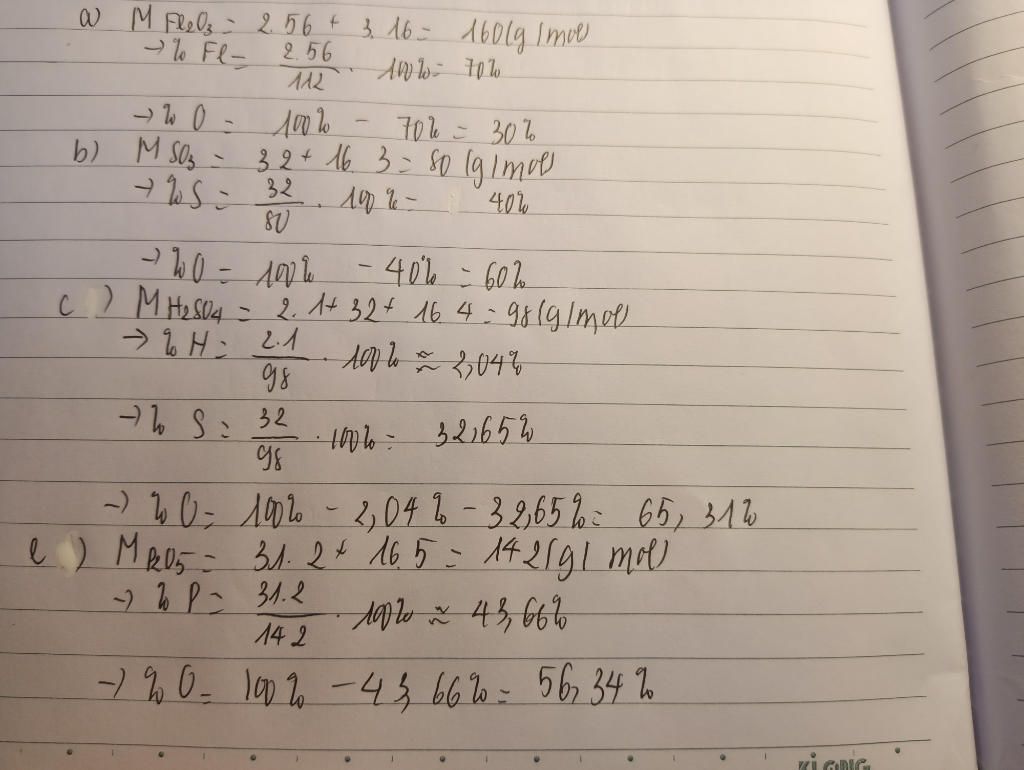 a) M Fe2O3 = 2.56 + 3.16 = 160(g/mol)
→ % Fe = 2.56/112 . 100% = 70%
→ % O = 100% - 70% = 30%
b) M SO3 = 32 + 16.3 = 80 (g/mol)
→ % S = 32/80 . 100% = 40%
→ % O = 100% - 40% = 60%
c) M H2SO4 = 2.1 + 32 + 16.4 = 98(g/mol)
→ % H = 2.1/98 . 100% ≈ 2,04%
→ % S = 32/98 . 100% = 32,65%
→ % O = 100% - 2,04% - 32,65% = 65,31%
e) M P2O5 = 31.2 + 16.5 = 142(g/mol)
→ % P = 31.2/142 . 100% ≈ 43,66%
→ % O = 100% - 43,66% = 56,34%